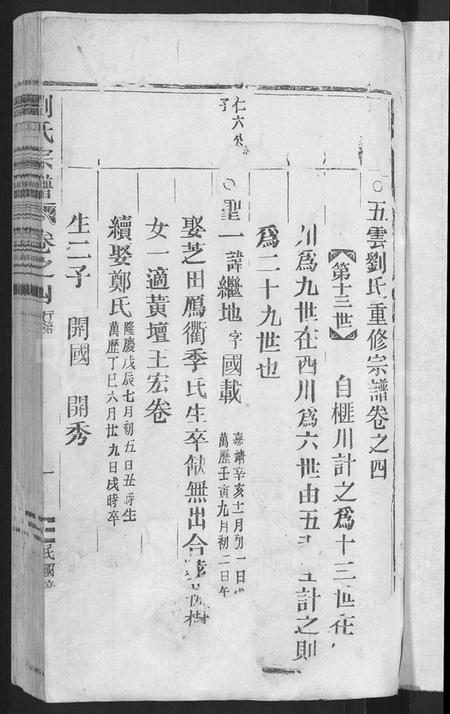 五雲劉氏重修宗譜卷之四
【第十三世】 自榧川計之爲十三世在
川爲九世在西川爲六世由五 計之則
爲二十九世也
仁六公
子
聖一諱繼地字國載 嘉靖辛亥十一月初一日
萬歷壬寅九月初二日午
娶芝田鴈衢季氏生卒缺無出合葬 樹
女一適黃壇王宏卷
續娶鄭氏 隆慶戊辰七月初五日丑時生
萬歷丁巳六月廿九日戌時卒
生二子 開國 開秀
劉氏宗譜 卷之四 行第 一 民國